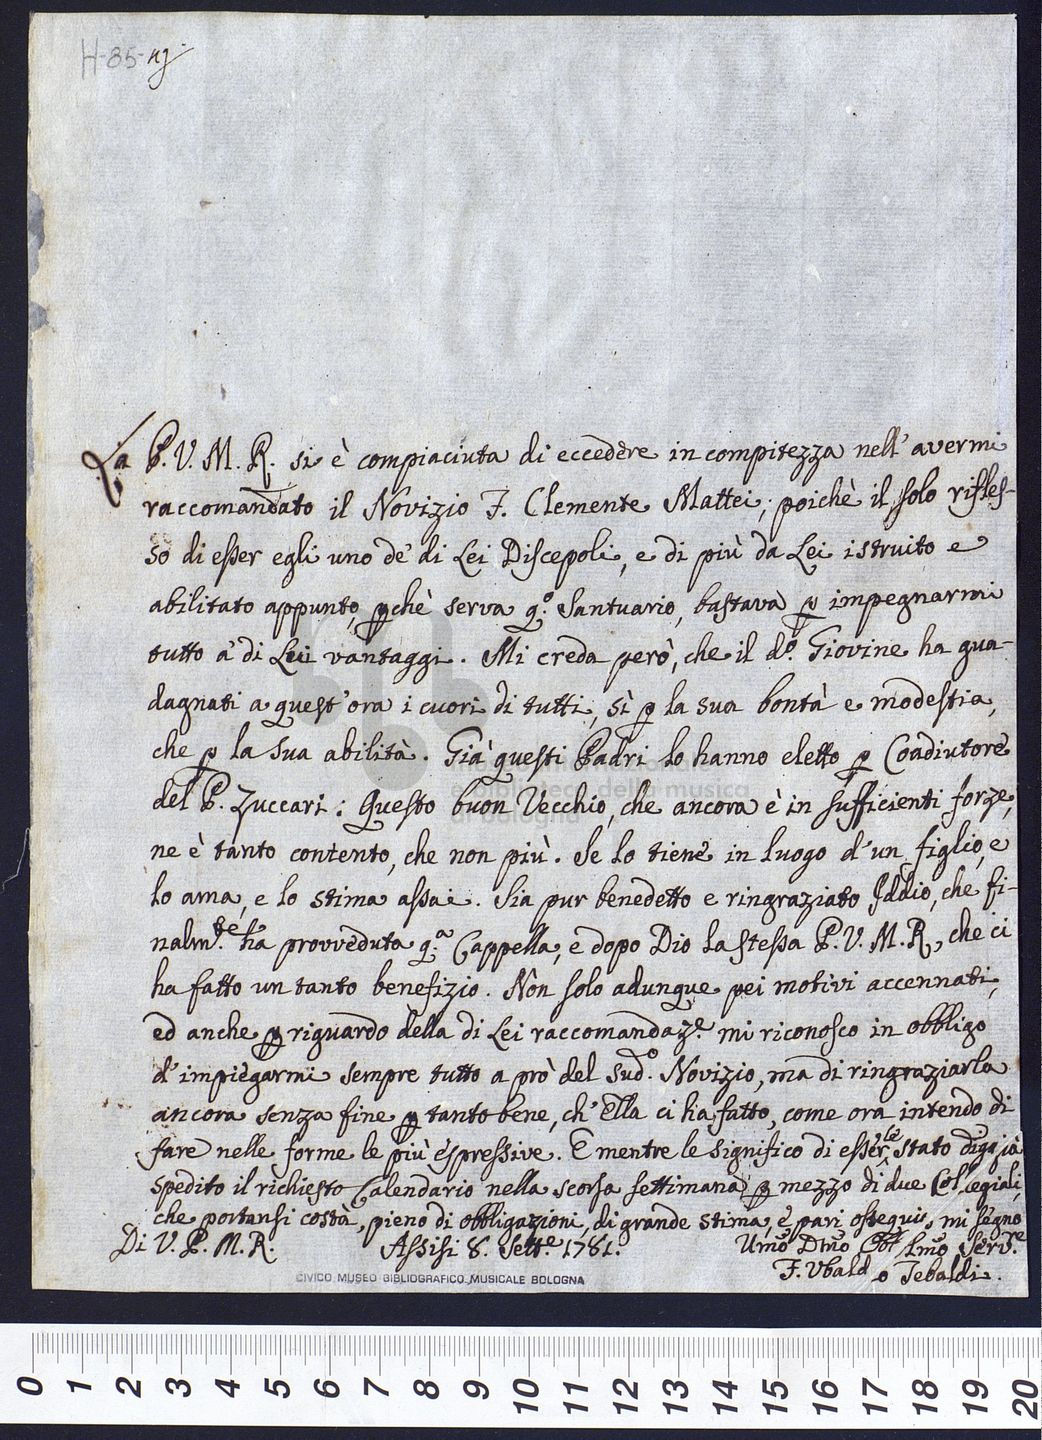 H-85-nj
La P. V. M. R. si è compiaciuta di eccedere in compitezza nell' avermi
raccomandato il Novizio F. Clemente Mattei; poichè il solo rifles-
so di esser egli uno de' di Lei Discepoli, e di più da Lei istruito e
abilitato appunto, pchè serva q.o Santuario, bastava p impegnarmi
tutto a' di Lei vantaggi. Mi creda però, che il d.o Giovine ha gua-
dagnati a quest' ora i cuori di tutti, sì p la sua bontà e modestia,
che p la sua abilità. Già questi Padri lo hanno eletto p Coadiutore
del P. Zuccari: Questo buon Vecchio, che ancora è in sufficienti forze,
ne è tanto contento, che non più. Se lo tiene in luogo d' un figlio, e
lo ama, e lo stima assai. Sia pur benedetto e ringraziato Iddio, che fi-
nalm.te ha provveduta q.a Cappella, e dopo Dio la stessa P. V. M. R., che ci
ha fatto un tanto benefizio. Non solo adunque pei motivi accennati,
ed anche p riguardo della di Lei raccomandaz.e mi riconosco in obbligo
d' impiegarmi sempre tutto a prò del sud.o Novizio, ma di ringraziarla
ancora senza fine p tanto bene, ch' Ella ci ha fatto, come ora intendo di
fare nelle forme le più espressive. E mentre le significo di esserle stato di già
spedito il richiesto Calendario nella scorsa settimana p mezzo di due Collegiali,
che portansi costà, pieno di obbligazioni, di grande stima, e pari ossequio, mi segno
Di V. P. M. R. Assisi 8. Sett.e 1781. Umo Dmo Obb Smo Serv.re
F. Ubaldo Tebaldi.
CIVICO MUSEO BIBLIOGRAFICO MUSICALE BOLOGNA
e biblioteca della musica
di bologna
0 1 2 3 4 5 6 7 8 9 10 11 12 13 14 15 16 17 18 19 20